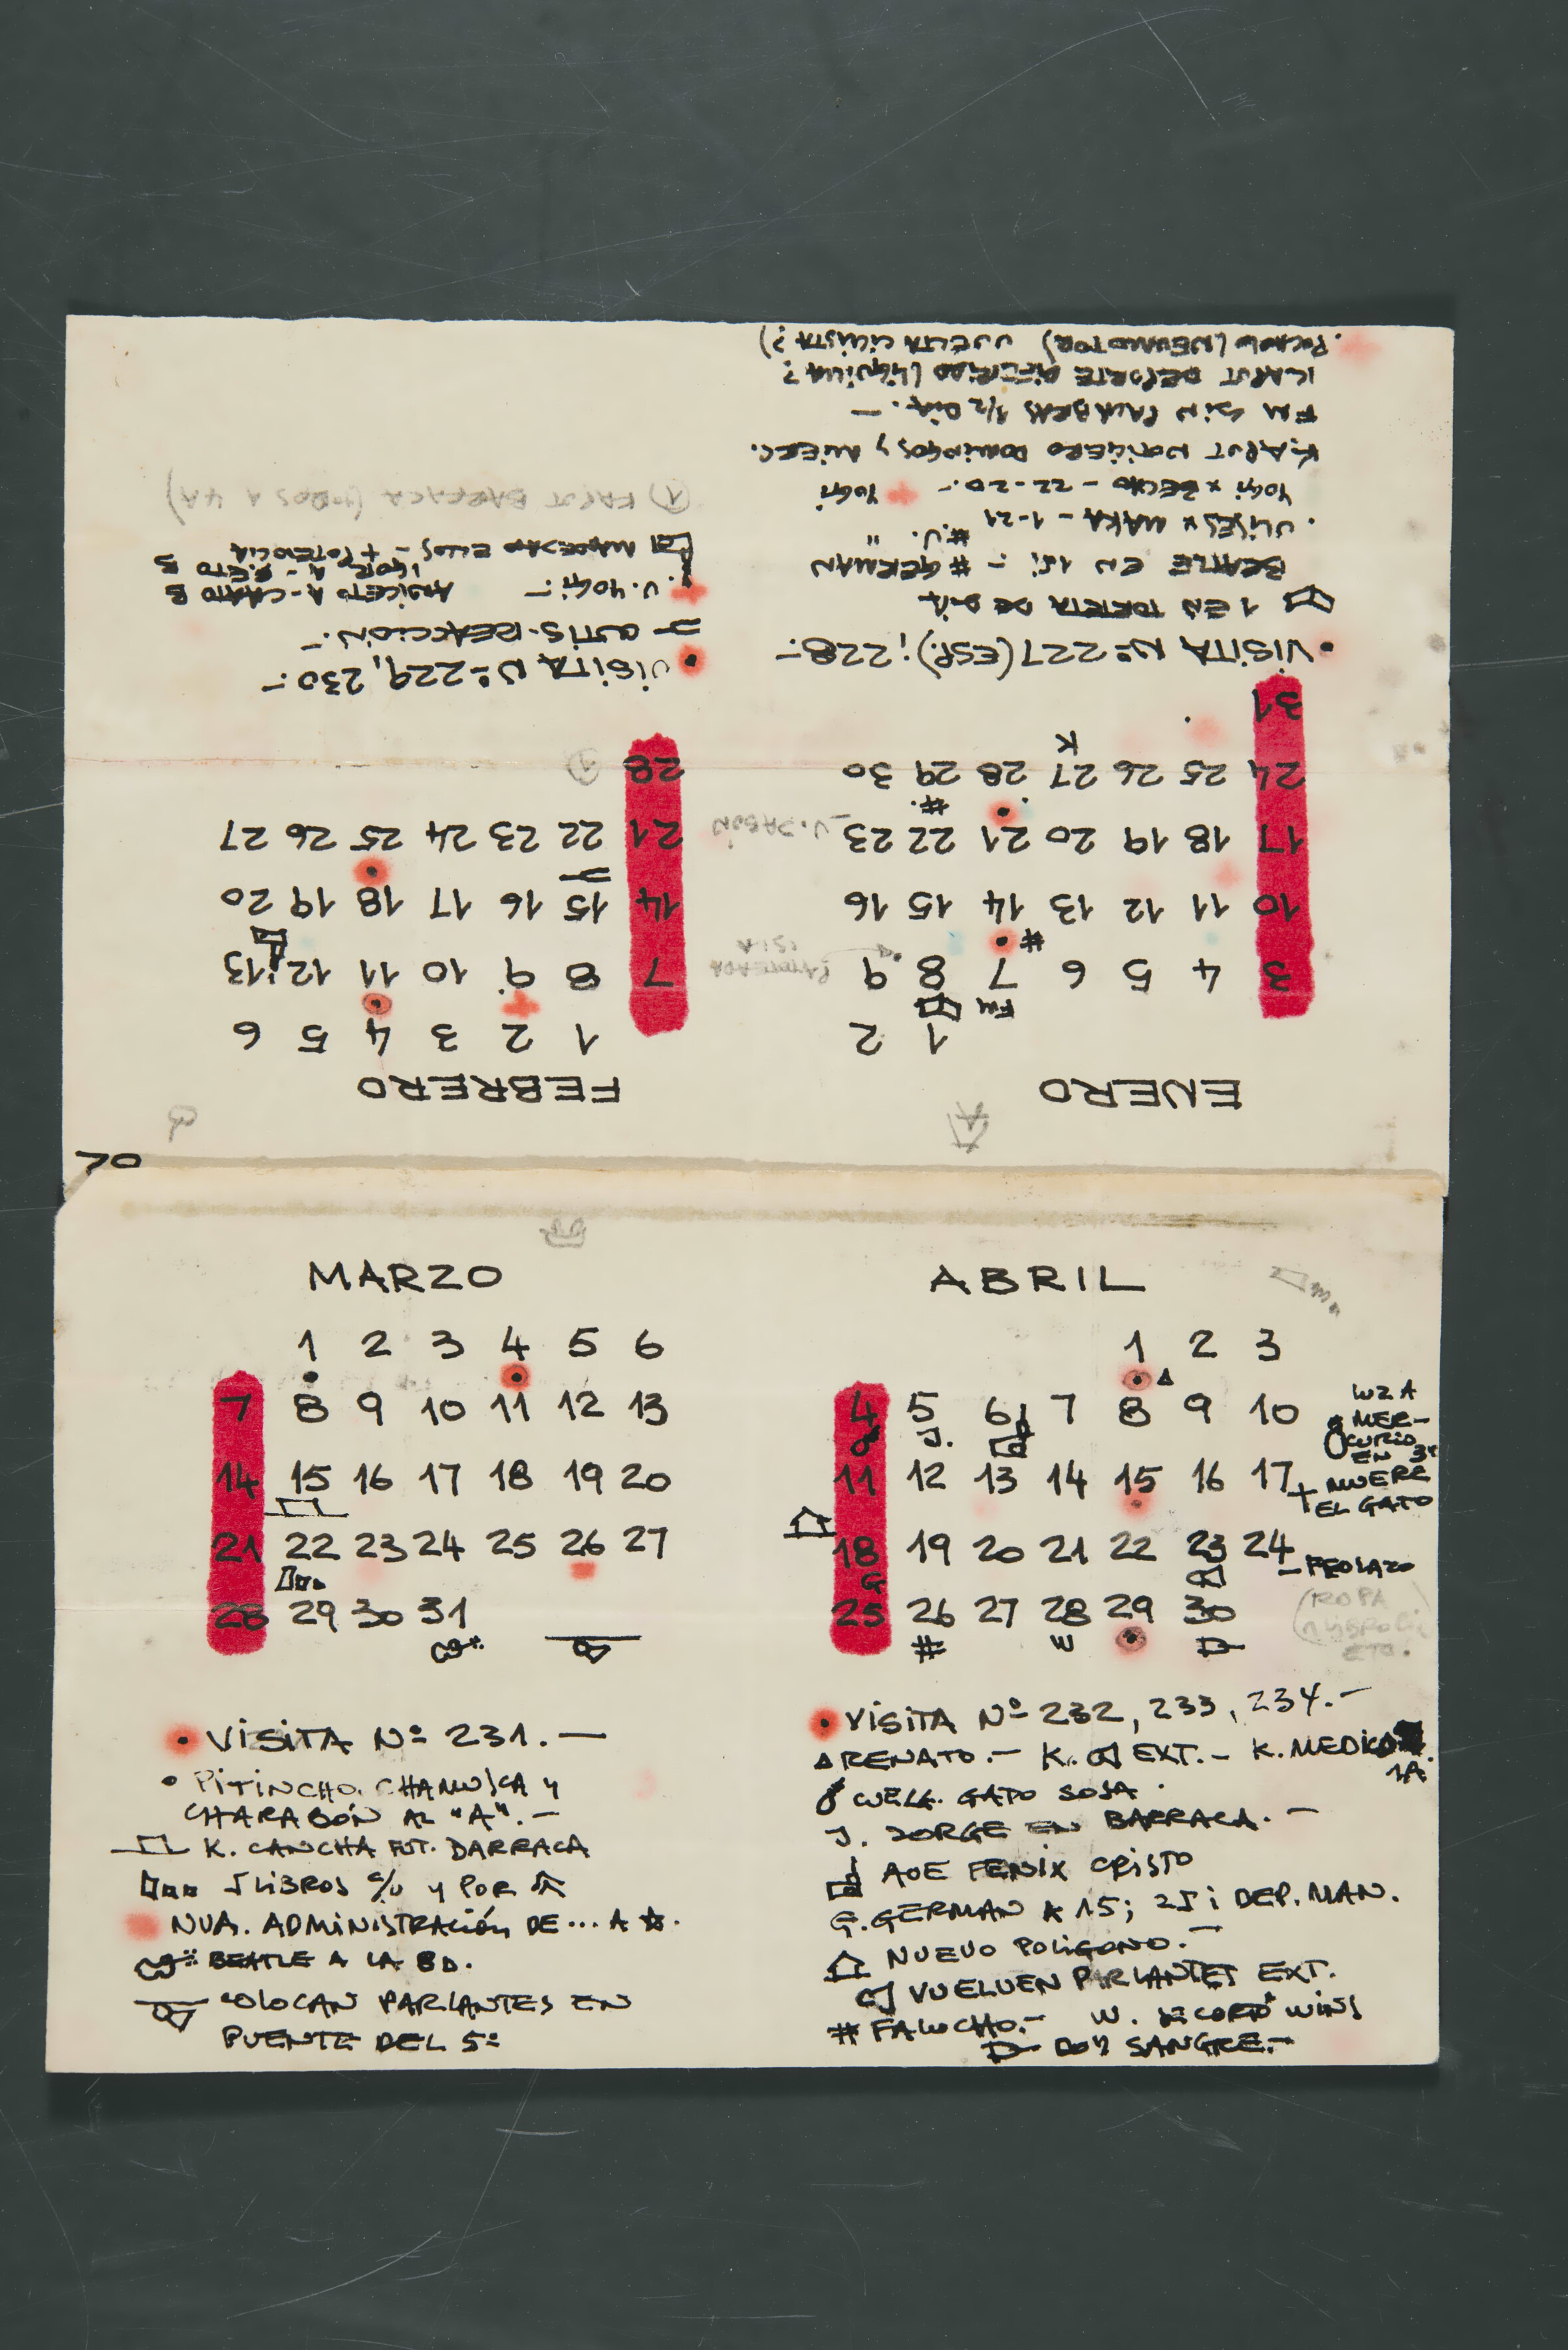 ENERO
1 2
3 4 5 6 7 8 9
10 11 12 13 14 15 16
17 18 19 20 21 22 23
24 25 26 27 28 29 30
31
K
FM
VISITA Nº 227 (ESP.); 228.-
1 EN TORRETA DE
BEATLE EN 15; - # GERMAN
ULISES X MAKA - 1-21 #U. "
YOGI X BECHO - 22-20.- YOGI
K.APUT NOTICIERO DOMINGOS y MIERC.
FM SIN PALABRAS 1/2 DIA. -
KAPUT DEPORTE DIFERIDO
POCHOLO VUELTA CICLISTA?)
FEBRERO
1 2 3 4 5 6
7 8 9 10 11 12 13
14 15 16 17 18 19 20
21 22 23 24 25 26 27
28 1
VISITA Nº 229, 230.-
GUTIS-REACCIÓN.-
V. YOGI.- ANICETO A - CHATO B
IGOR A - BETO B
ELLOS - + POTENCIA
1 BARRACA (TODOS A 4A)
70
MARZO
1 2 3 4 5 6
7 8 9 10 11 12 13
14 15 16 17 18 19 20
21 22 23 24 25 26 27
28 29 30 31
VISITA Nº 231.—
PITINCHO. CHAMUSCA Y
CHARABÓN AL "A".—
K. CANCHA FUT. BARRACA
5 LIBROS c/u Y POR
NVA. ADMINISTRACIÓN DE... A ☆.
BEATLE A LA BD.
COLOCAN PARLANTES EN
PUENTE DEL 5º
ABRIL
1 2 3
4 5 6 7 8 9 10
J.
11 12 13 14 15 16 17
18 19 20 21 22 23 24
G
25 26 27 28 29 30
# W
MER-
CURIO
EN 3ª
+ MUERE
EL GATO
(ROPA
VISITA Nº 232, 233, 234.—
RENATO.— K. EXT.— K. MEDICO
GATO SOSA
J. JORGE EN BARRACA.—
FENIX CRISTO
G. GERMAN A 15; 25; DEP. MAN.
NUEVO POLIGONO.—
VUELVEN PARLANTES EXT.
# FALUCHO.— W. SE CORTÓ WINS
DOY SANGRE.—